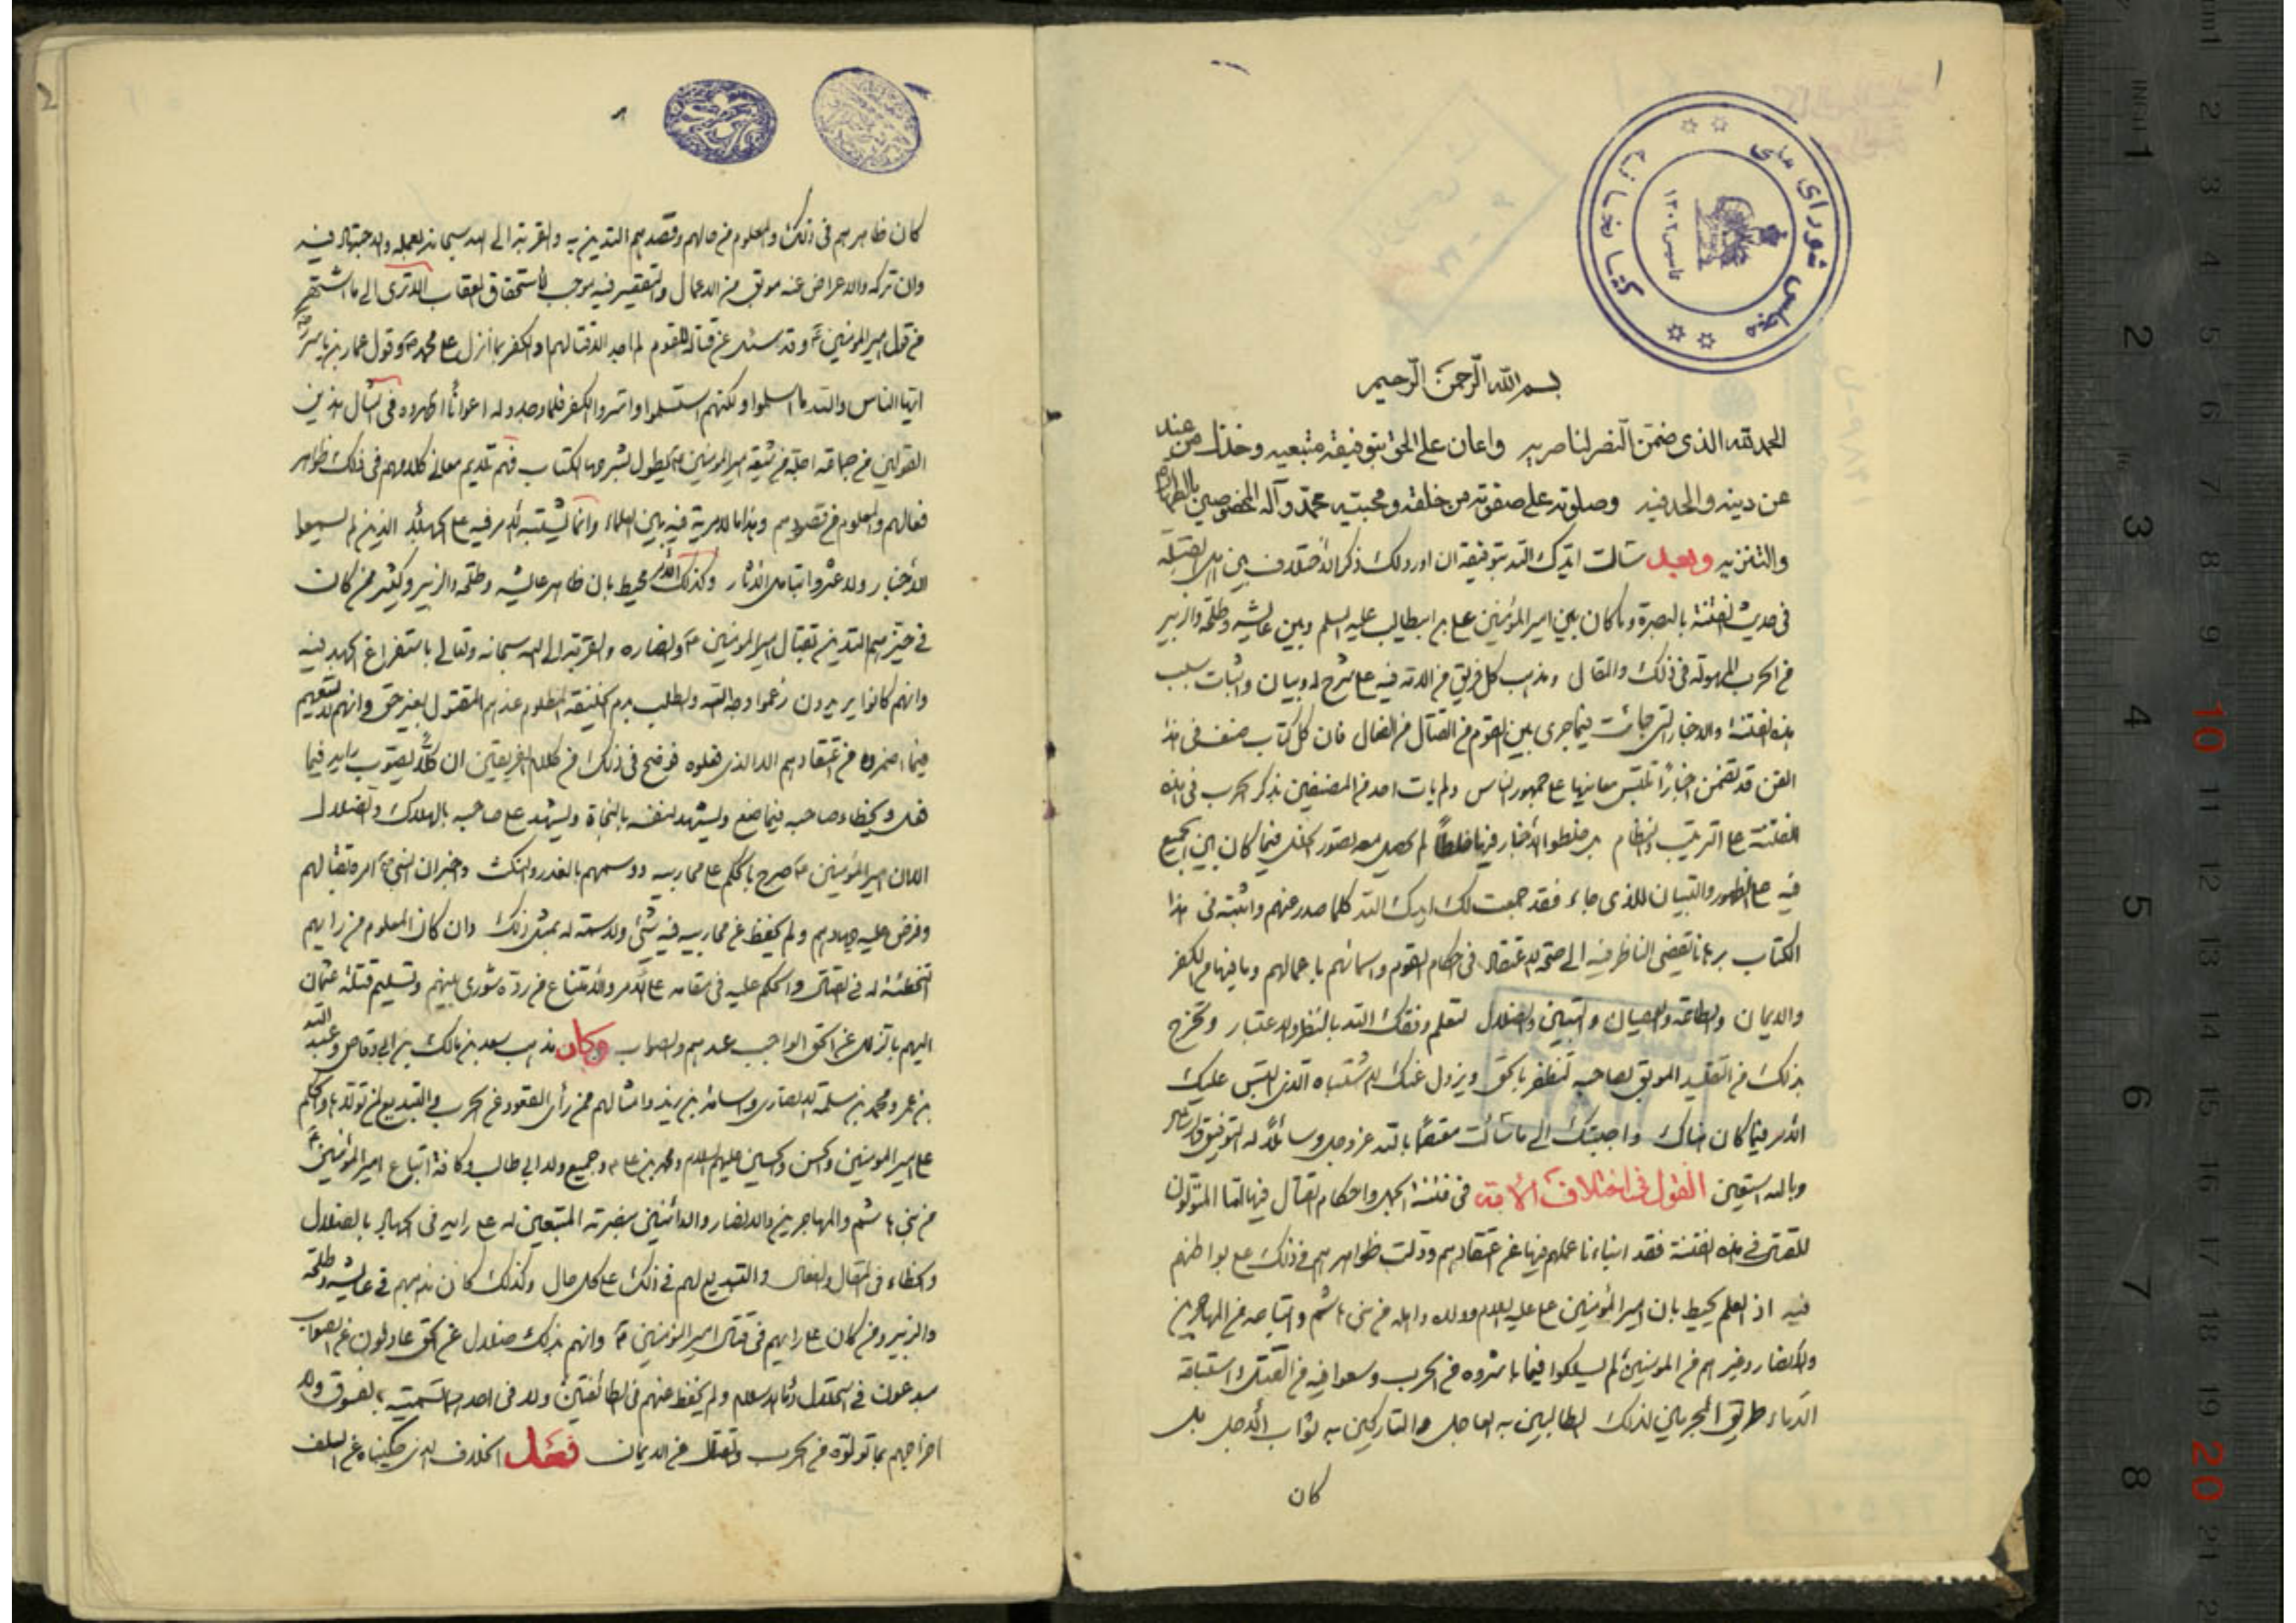 ١
كتابخانه مجلس شورای ملی
تاسیس ١٣٠٢
بسم الله الرحمن الرحيم
الحمد لله الذى ضمن النصر لناصريه واعان على الحق بتوفيقه متبعيه وخذل من عند
عن دينه والحد فيه وصلوته على صفوته من خلقه ومحبتيه محمد وآله المخصوصين بالطهارة
والتنزيه وبعد سالت ايدك الله بتوفيقه ان اورد لك ذكر الاختلاف بين اهل القبلة
فى حديث الفتنة بالبصرة وما كان بين امير المؤمنين على بن ابيطالب عليه السلم وبين عايشه وطلحة والزبير
من الحرب المهولة فى ذلك والمقال ومذهب كل فريق من الامة فيه على شرح له وبيان واثبات سبب
هذه الفتنة والاخبار التى جائت فيما جرى بين القوم من القتال من الفعال فان كل كتاب صنف فى هذا
الفن قد تضمن اخبارًا تلتبس معانيها على جمهور الناس ولم يات احد من المصنفين بذكر الحرب فى هذه
الفتنة على الترتيب والنظام بل خلطوا الاخبار فيها خلطًا لم يحصل معه تصور الخلل فيما كان بين الجميع
فيه على الظهور والتبيان للذى جاء فقد جمعت لك ايدك الله كلما صدر عنهم واثبته فى هذا
الكتاب برهانا يفضى الناظر فيه الى صحة الاعتقاد فى احكام القوم واسمائهم باعمالهم وما فيها من الكفر
والايمان والطاعة والعصيان والتبيين والضلال لتعلم وفقك الله بالنظر والاعتبار وتخرج
بذلك من التقليد الموبق لصاحبه لتظفر بالحق ويزول عنك الاشتباه الذى التبس عليك
الامر فيما كان هناك واجبتك الى ما سألت معتصمًا بالله عز وجل وسائلًا له التوفيق والرشاد
وبالله استعين القول فى اختلاف الأمة فى فتنة الجمل واحكام القتال فيها اما المتولون
للقتال فى هذه الفتنة فقد انباءنا عملهم فيها عن اعتقادهم ودلت ظواهرهم فى ذلك على بواطنهم
فيه اذ العلم يحيط بان امير المؤمنين على عليه السلام وولده واهله من بنى هاشم واتباعه من المهاجرين
والانصار وغيرهم من المؤمنين لم يسلكوا فيما باشروه من الحرب وسعوا فيه من القتال واستباحة
الدماء طريق المجرمين لذلك الطالبين به العاجل والتاركين به ثواب الاجل بل
كان
2
كان ظاهرهم فى ذلك والمعلوم من حالهم وقصدهم التدين به والقربة الى الله سبحانه بعمله والاجتهاد فيه
وان تركه والاعراض عنه موبق من الاعمال والتقصير فيه موجب لاستحقاق العقاب الا ترى الى ما اشتهر
من قول امير المؤمنين ع وقد سئل عن قتاله للقوم لم اجد الا قتالهم او الكفر بما انزل على محمد ص وقول عمار بن ياسر رضه
ايها الناس والله ما اسلموا ولكنهم استسلموا واسروا الكفر فلما وجدوا له اعوانًا اظهروه فى امثال هذين
القولين من جماعة اجلة من شيعة امير المؤمنين ع يطول بشرحها الكتاب فهم تلايم معانى كلامهم فى ذلك ظواهر
فعالهم والمعلوم من قصودهم وهذا ما لا مرية فيه بين العلماء وانما يشتبه الامر فيه على الجهلاء الذين لم يسمعوا
الأخبار ولا عثروا بتامل الاثار وكذلك الأمر محيط بان ظاهر عايشه وطلحة والزبير وكثير ممن كان
فى حيزهم التدين بقتال امير المؤمنين ع وانصاره والقربة الى الله سبحانه وتعالى باستفراغ الجهد فيه
وانهم كانوا يريدون زعموا وجه الله والطلب بدم الخليفة المظلوم عندهم المقتول بغير حق وانهم لا يسعهم
فيما اضمروه من اعتقادهم الا الذى فعلوه فوضح فى ذلك من كلا الفريقين ان كلًا يصوب رايه فيما
فعل ويخطاء صاحبه فيما صنع ويشهد لنفسه بالنجاة ويشهد على صاحبه بالهلاك والضلال
الا ان امير المؤمنين ع صرح بالحكم على محاربيه ووسمهم بالغدر والنكث واخبر ان النبى ص امره بقتالهم
وفرض عليه جهادهم ولم يحفظ عن محاربيه فيه شئ ولا سمة له بمثل ذلك وان كان المعلوم من رايهم
التخطئة له فى القتال والحكم عليه فى مقامه على الامر والامتناع من رده شورى بينهم وتسليم قتلة عثمان
اليهم بالزلل عن الحق الواجب عندهم والصواب وكان مذهب سعد بن مالك بن ابى وقاص وعبد الله
بن عمر ومحمد بن مسلمة الانصارى واسامة بن زيد وامثالهم ممن رأى القعود عن الحرب والتبديع لمن تولاها والحكم
على امير المؤمنين والحسن والحسين عليهم السلم ومحمد بن على ع وجميع ولد ابى طالب وكافة اتباع امير المؤمنين ع
من بنى هاشم والمهاجرين والانصار والدائنين بنصرته المتبعين له على رايه فى الجهاد بالضلال
والخطاء فى المقال والفعال والتبديع لهم فى ذلك على كل حال وكذلك كان مذهبهم فى عايشه وطلحة
والزبير ومن كان على رايهم فى قتال امير المؤمنين ع وانهم بذلك ضلال عن الحق عادلون عن الصواب
مبدعون فى استحلال دماء اهل الاسلام ولم يحفظ عنهم فى الطائفتين ولا فى احدهما تسمية بالفسوق ولا
اخراجهم بما تولوه من الحرب والقتال عن الايمان فصل الخلاف الذى حكيناه عن السلف